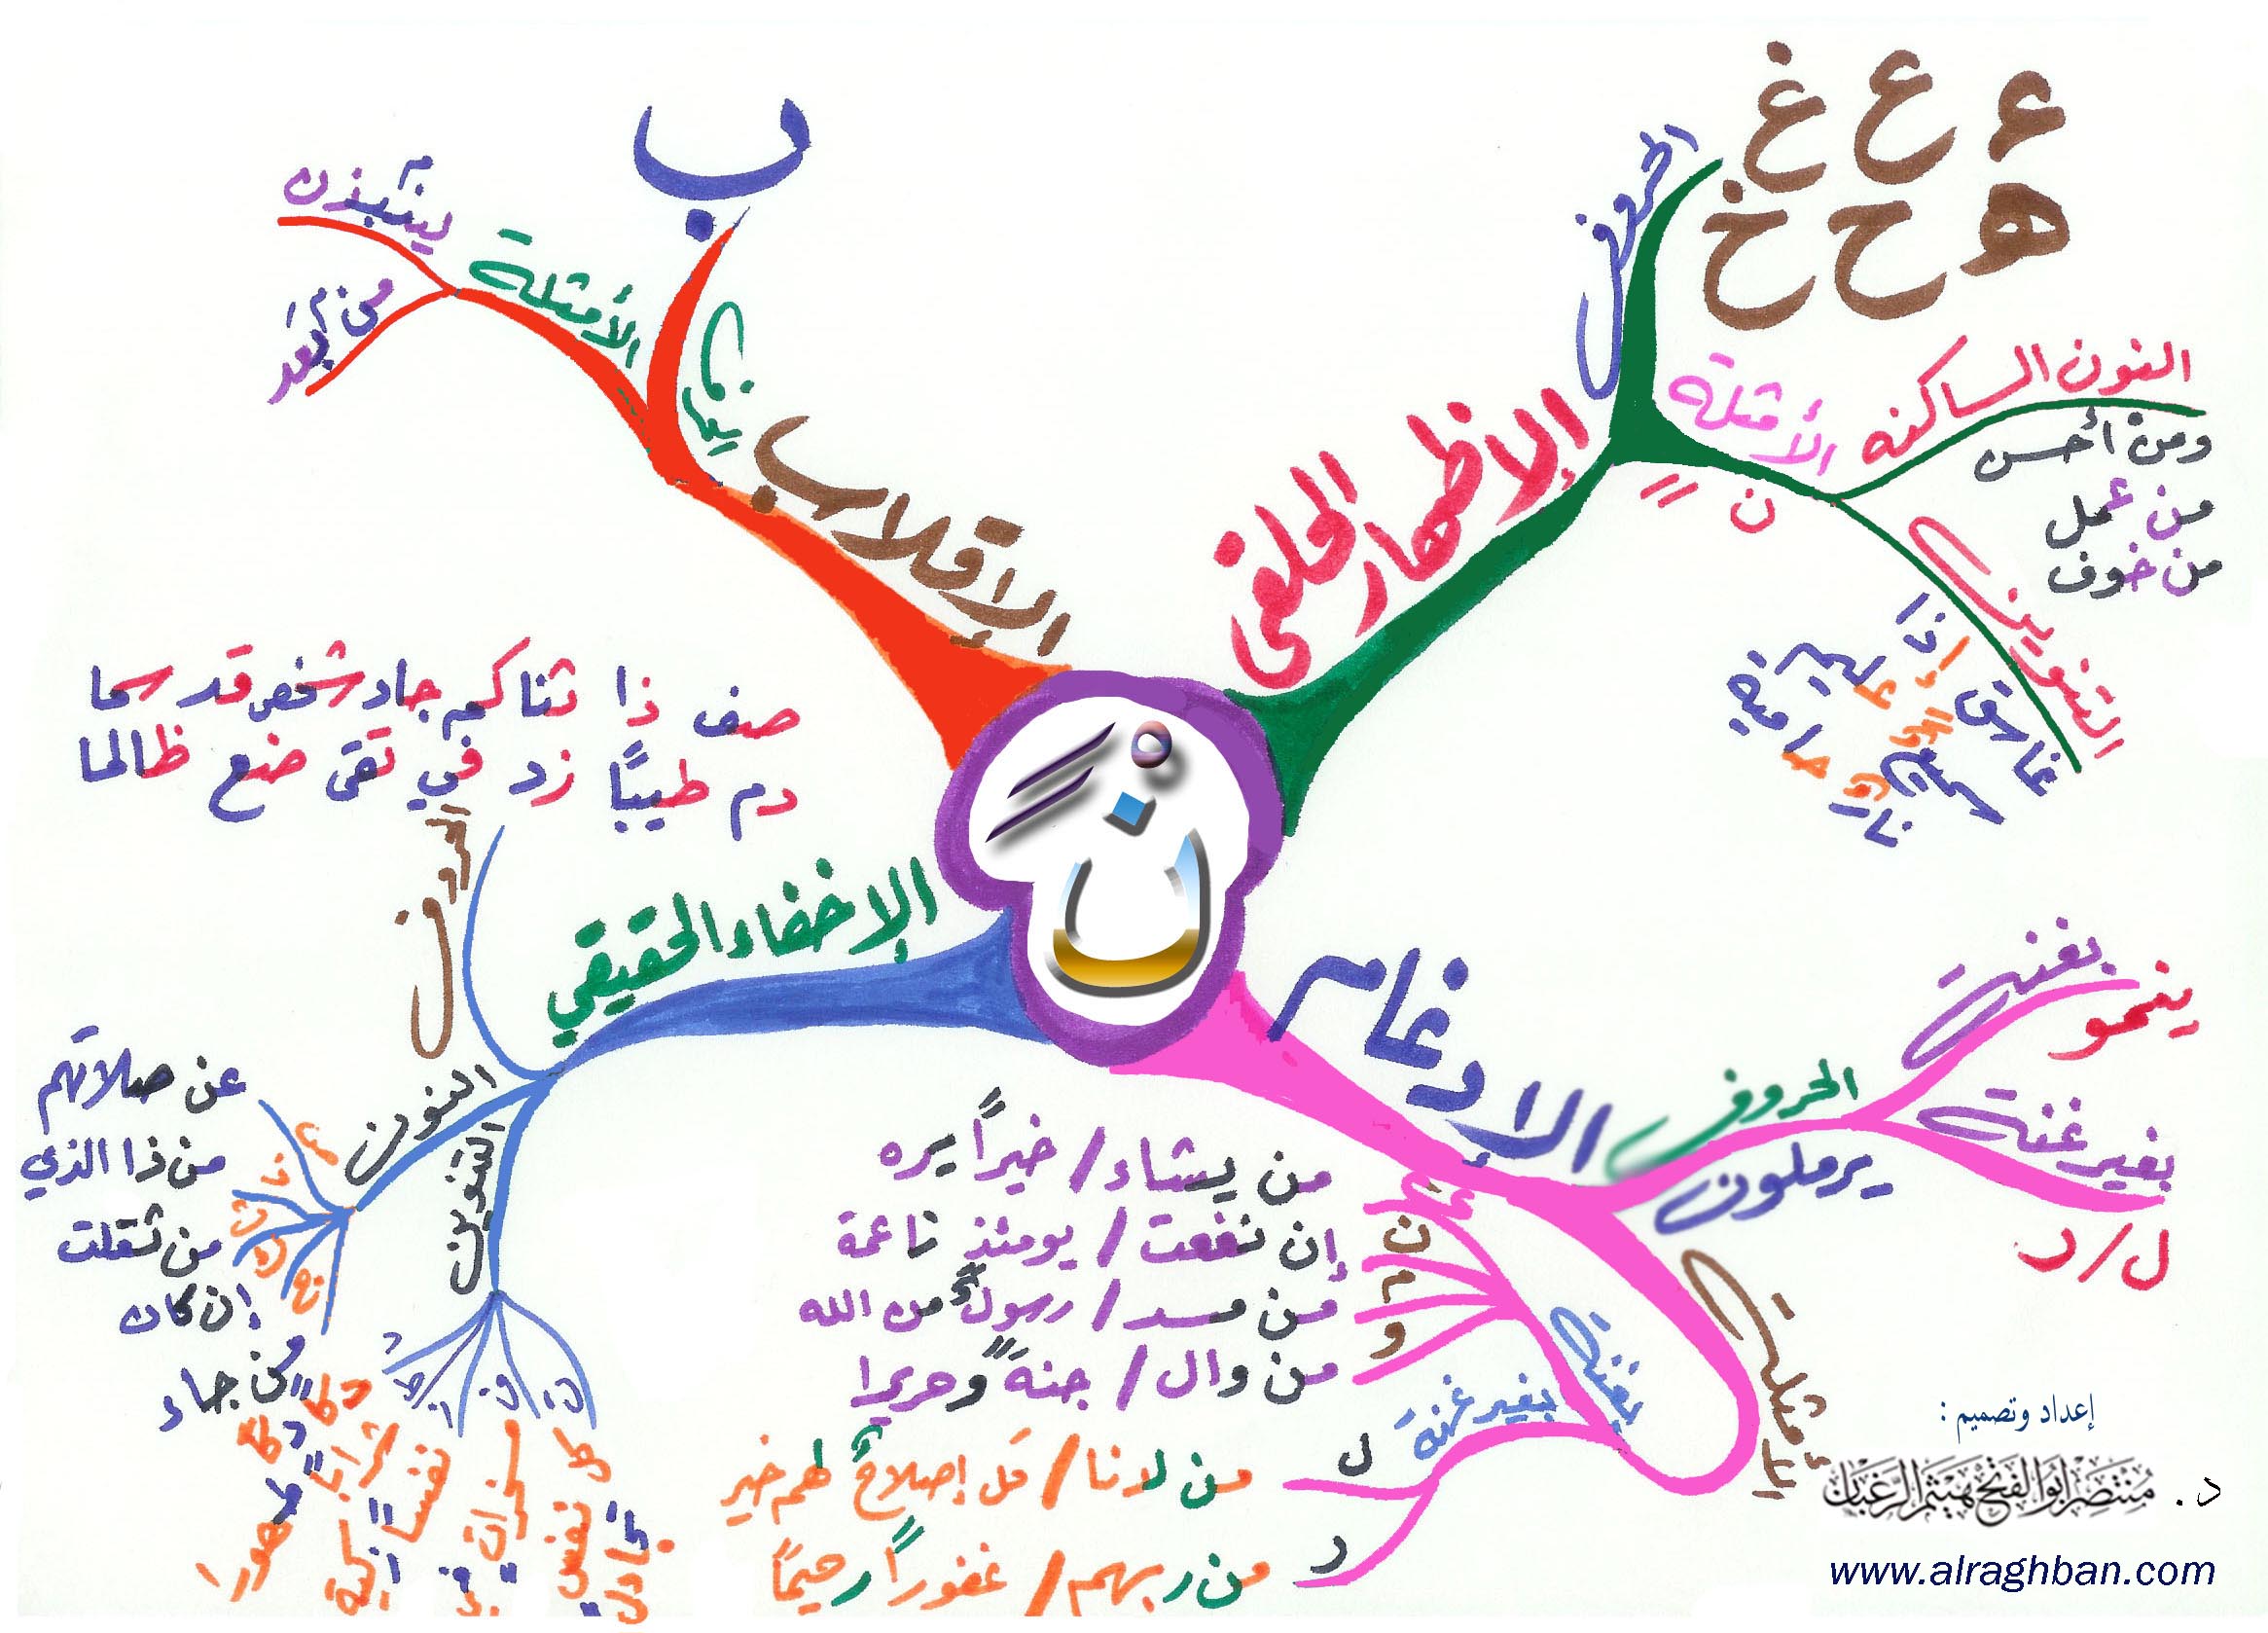 الإظهار الحلقي
الحروف
ء ع غ
ه ح خ
الأمثلة
ن
النون الساكنه
ومن أحسن
من عمل
من خوف
التنوين
غاسق إذا
نارٌ حامية
الإقلاب
ب
الأمثلة
لينبذن
من بعد
ن
صف ذا ثنا كم جاد شخص قد سما
دم طيبًا زد في تقى ضع ظالما
الإخفاء الحقيقي
الحروف
النون
عن صلاتهم
من ذا الذي
من ثقلت
إن كان
من جاء
التنوين
الإدغام
الحروف
يرملون
بغنة
ينمو
بغير غنة
ل/ر
الأمثلة
بغنة
ن
م
و
من يشاء / خيراً يره
إن نفعت / يومئذ ناعمة
من مسد / رسولٌ من الله
من وال / جنةً وحريرا
بغير غنة
ل
من لدنا / قل إصلاحٌ لهم خير
ر
من ربهم / غفوراً رحيمًا
إعداد وتصميم :
د. منتصر أبو الفتح هيثم الرغبان
www.alraghban.com